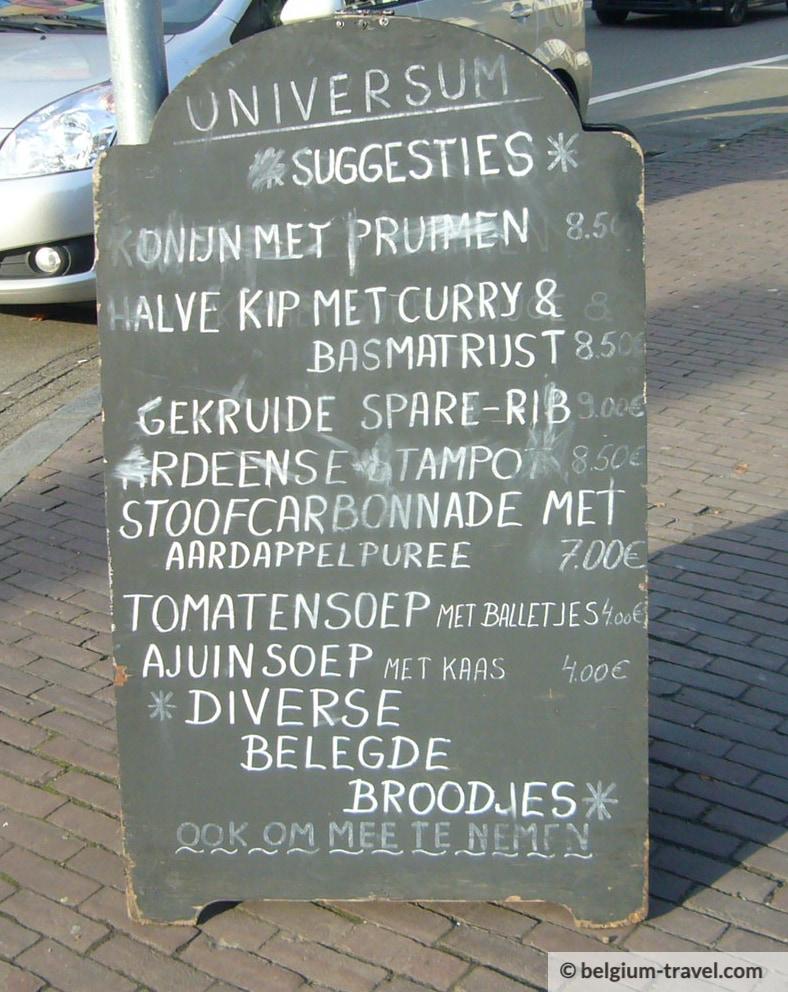 UNIVERSUM
*SUGGESTIES*
KONIJN MET PRUIMEN 8.50
HALVE KIP MET CURRY &
BASMATRIJST 8.50€
GEKRUIDE SPARE-RIB 9.00€
ARDEENSE STAMPOT 8.50€
STOOFCARBONNADE MET
AARDAPPELPUREE 7.00€
TOMATENSOEP MET BALLETJES 4.00€
AJUINSOEP MET KAAS 4.00€
*DIVERSE
BELEGDE
BROODJES*
OOK OM MEE TE NEMEN
© belgium-travel.com